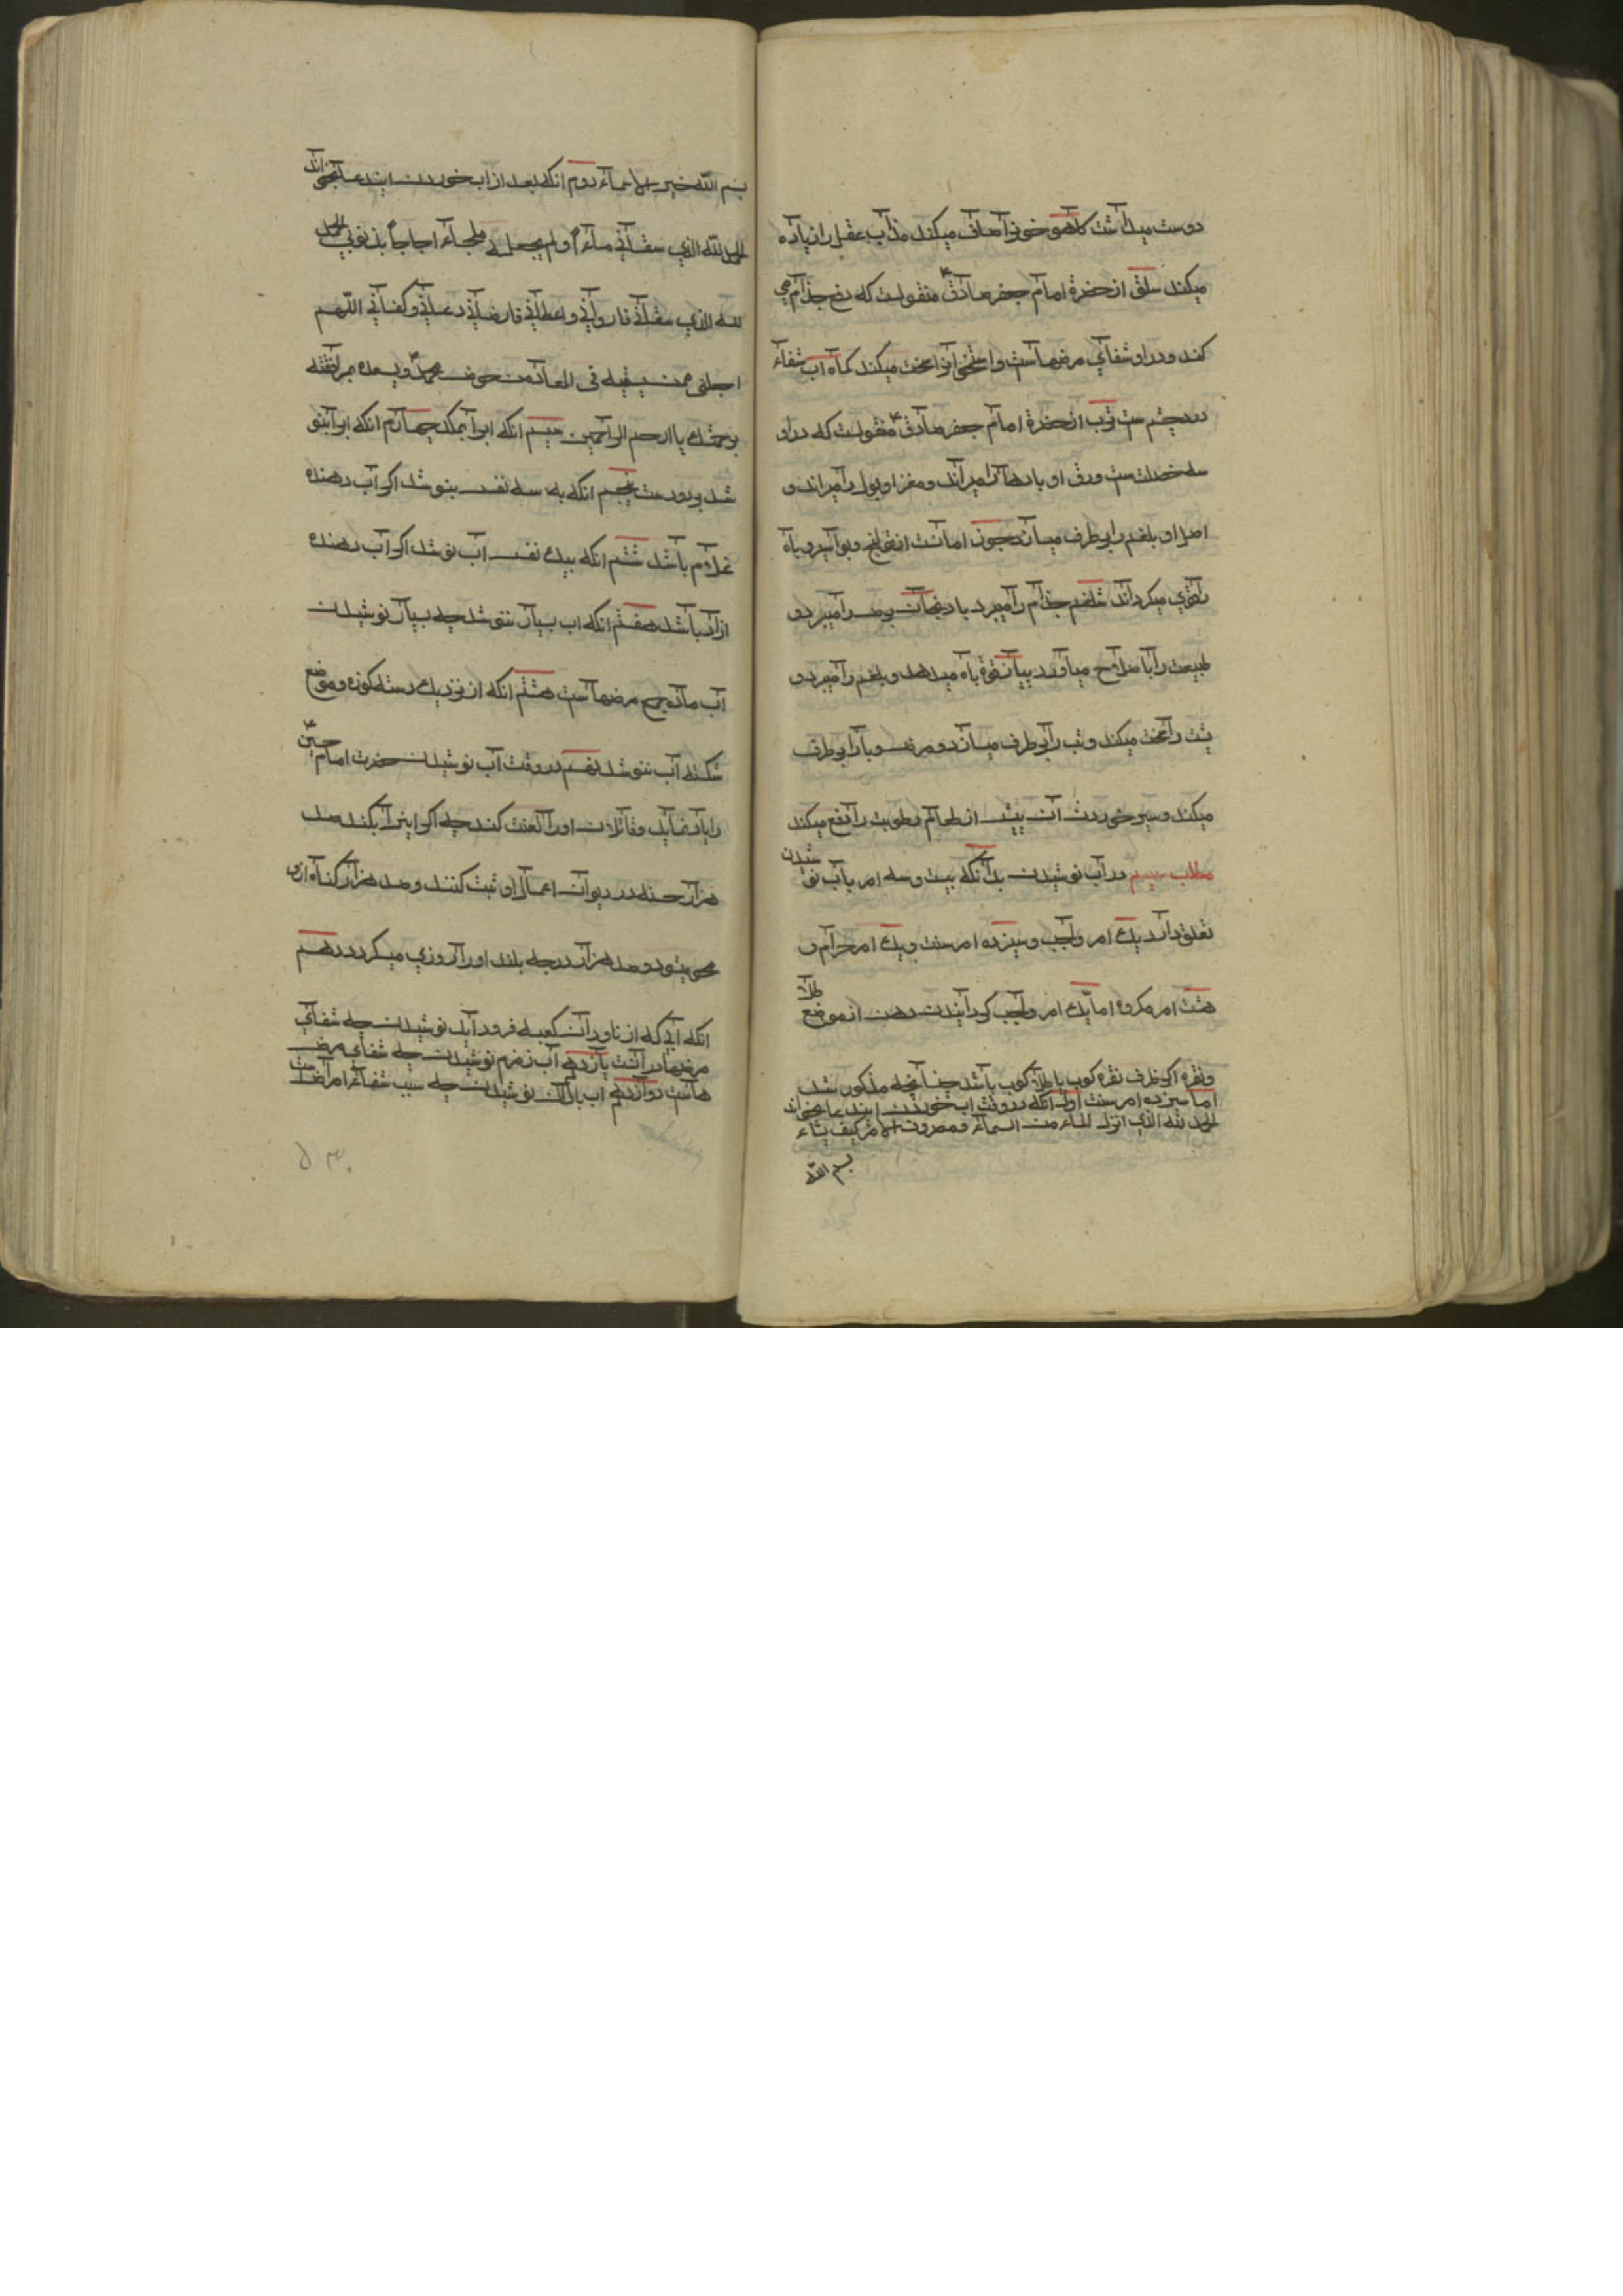 دوست میداشت کاهو خون را صاف میکند سداب عقل را زیاده
میکند سلق از حضرة امام جعفر صادق ع منقولست که دفع جذام می
کند و در او شفای مرضهاست و استخوان را سخت میکند کماه آب شفاء
درد چشم ست ترب از حضرة امام جعفر صادق ع منقولست که در او
سه خصلت ست ورق او بادها را میراند و مغز او بول را میراند و
اصل او بلغم را برطرف میسازد جون امانست از قولنج و بواسیر و باه
را قوی میگرداند شلغم جذام را میبرد بادنجان برص را میبرد و
طبیعت را باصلاح میاورد پیاز قوة باه میدهد و بلغم را میبرد و
پشت را سخت میکند و تب را برطرف میسازد و مرض وبا را برطرف
میکند و سیر خوردن آن پیش از طعام رطوبت را دفع میکند
مطلب سیم در آب نوشیدن بدانکه بیست و سه امر بآب نوشیدن
تعلق دارد یک امر واجب و سیزده امر سنت و یک امر حرام و
هشت امر مکروه اما یک امر واجب گردانیدن دهن از موضع طلا
ونقره اگر ظرف نقره کوب یا طلا کوب باشد چنانچه مذکور شد
اما سیزده امر سنت اول آنکه در وقت اب خوردن این دعا بخواند
الحمد لله الذی انزل الماء من السماء و مصرف الامر کیف یشاء
بسم الله
بسم الله خیر الاسماء دوم انکه بعد از اب خوردن این دعا بخواند
الحمد لله الذی سقانی ماء و لم یجعله ملحا اجاجا بذنوبی الحمد
لله الذی سقانی فاروانی و اعطانی فارضانی و عافانی و کفانی اللهم
اجعلنی ممن تسقیه فی المعاد من حوض محمد ص و تسعده بمرافقته
برحمتک یا ارحم الراحمین سیم انکه ابرا بمکد چهارم انکه ابرا بنو
شد بدو دست پنجم انکه به سه نفس بنوشد اگر آب دهنده
غلام باشد ششم انکه بیک نفس آب نوشد اگر آب دهنده
ازاد باشد هفتم انکه اب بسیار ننوشد چه بسیار نوشیدن
آب ماده جمیع مرضهاست هشتم انکه از نزدیک دسته کوزه و موضع
شکسته آب ننوشد نهم در وقت آب نوشیدن حضرت امام حسین ع
را یاد نماید و قاتلان او را لعنت کند چه اگر اینرا بکند صد
هزار حسنه در دیوان اعمال او ثبت کنند و صد هزار گناه از او
محو میشود و صد هزار درجه بلند او را روزی میگردد دهم
انکه آبی که از ناودان کعبه فرود آید نوشیدن چه شفای
مرضها در آنست یازدهم آب زمزم نوشیدن چه شفای مرض
هاست دوازدهم اب باران نوشیدن چه سبب شفاء امراضست